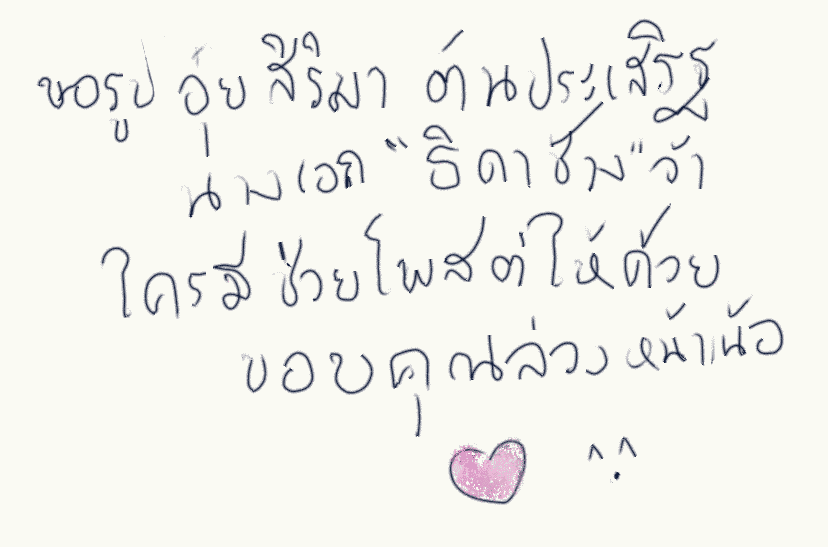 ขอรูป อุ๋ย สิริมา ต้นประเสริฐ
นางเอก "ธิดาช้าง" จ้า
ใครมี ช่วยโพสต์ให้ด้วย
ขอบคุณล่วงหน้าเน้อ
^.^